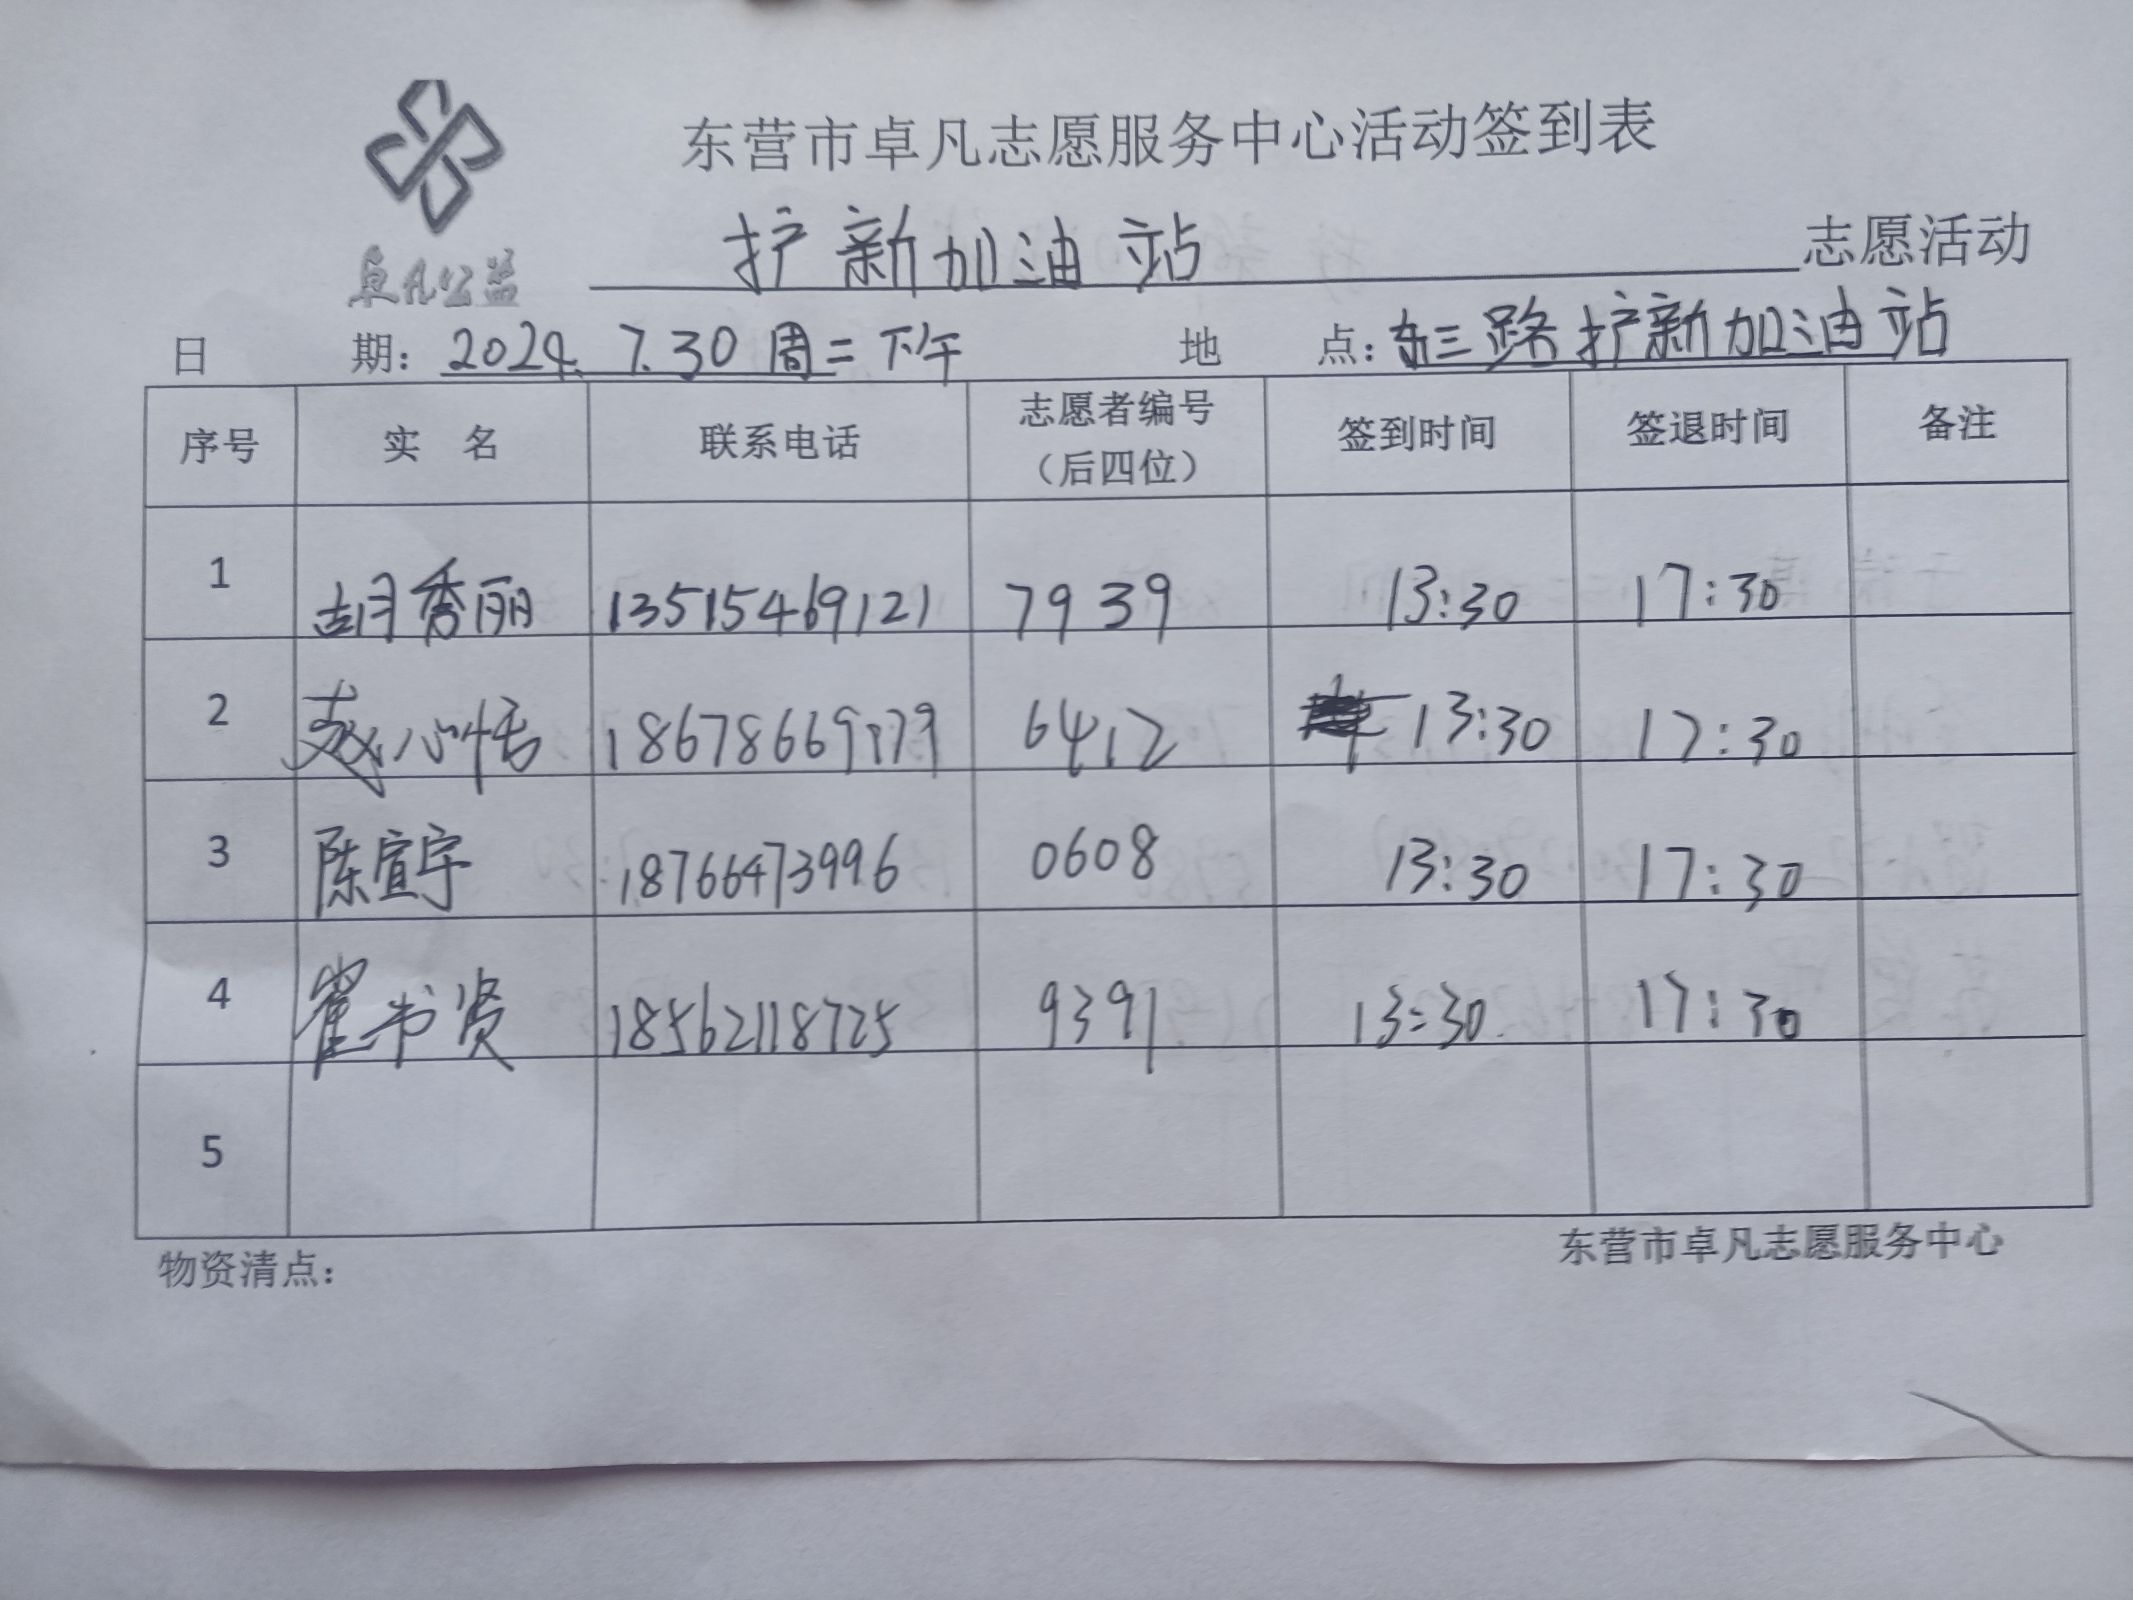 东营市卓凡志愿服务中心活动签到表
卓凡公益
护新加油站 志愿活动
日 期: 2024. 7.30 周二下午 地 点: 东三路护新加油站
序号 实 名 联系电话 志愿者编号（后四位） 签到时间 签退时间 备注
1 胡秀丽 13515469121 7939 13:30 17:30
2 心恬 18678669179 6412 13:30 17:30
3 陈宣宇 18766473996 0608 13:30 17:30
4 崔书贤 18562118725 9391 13:30 17:30
5
物资清点: 东营市卓凡志愿服务中心